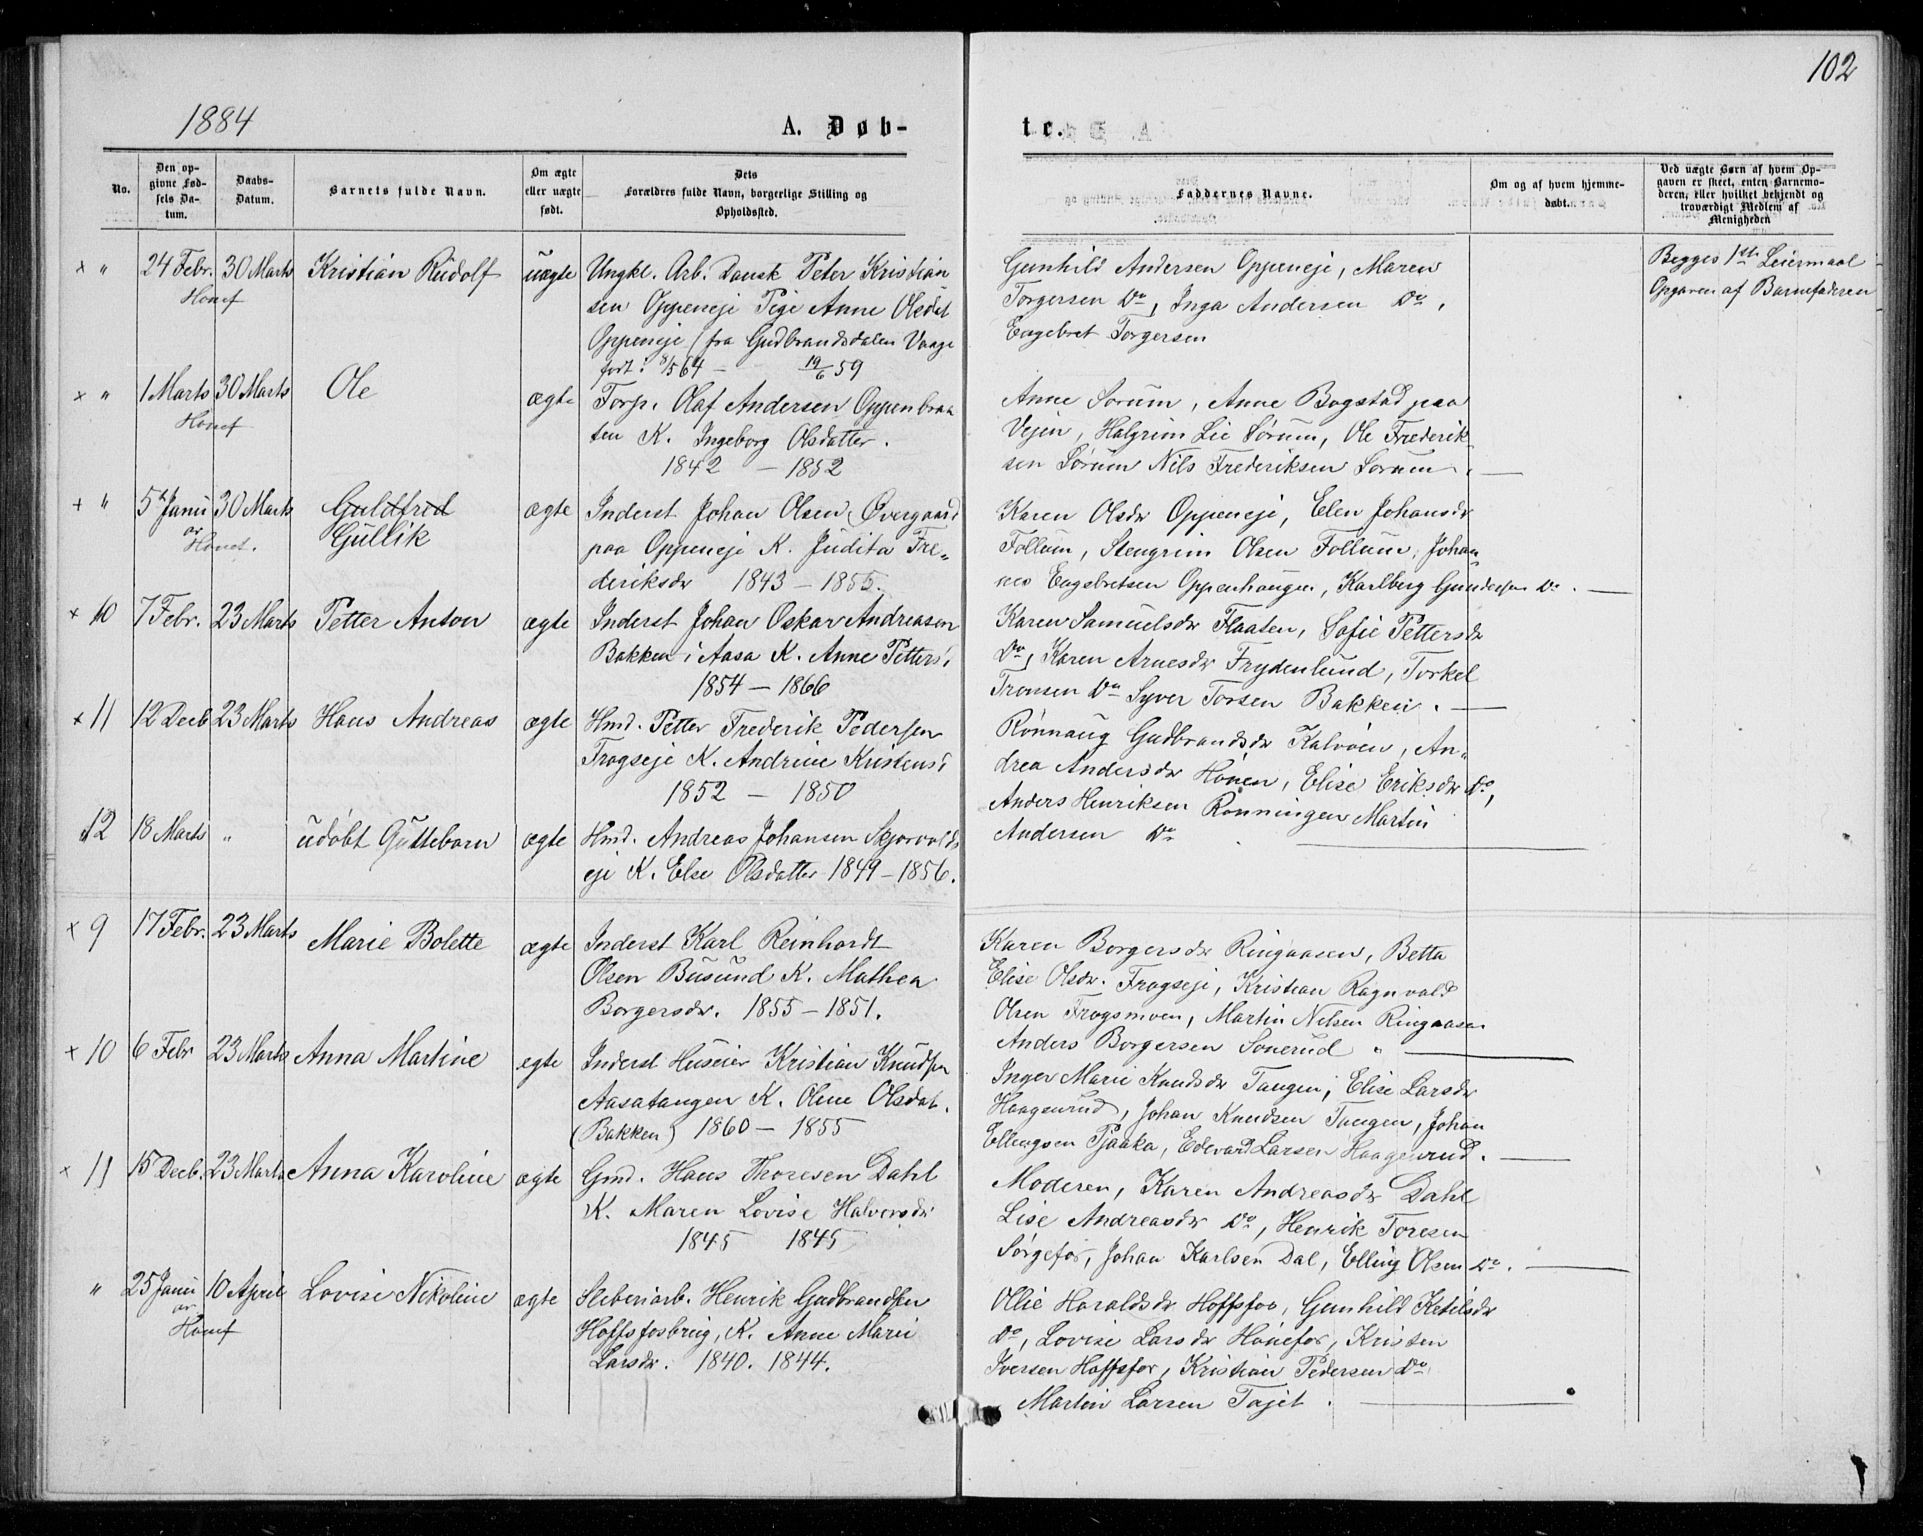 102
1884
A. Døb-
te.
No.
Den op-
givne Fød-
sels Da-
tum.
Daabs-
Datum.
Barnets fulde Navn.
Om ægte
eller uægte
født.
Dets
Forældres fulde Navn, borgerlige Stilling og
Opholdssted.
Faddernes Navne.
Om og af hvem hjemme-
døbt.
Ved uægte Børn af hvem Op-
gaven er skeet, enten Barnemo-
deren, eller hvilket bekjendt og
troværdigt Medlem af
Menigheden
× " 24 Febr. 30 Marts Kristian Rudolf uægte Ungkl. Arb. Dansk Peter Kristian
Honef
sen Oppeneje Pige Anne Olsdat
Oppeneje (fra Gudbrandsdalen Vaage
født: 8/5 64 - 19/6 59
Gunhild Andersen Oppeneje, Maren
Torgersen Do, Inga Andersen Do,
Engebret Torgersen
Begges 1ste Leiermaal
Opgaven af Barnefaderen
× " 1 Marts 30 Marts Ole ægte Torp. Olaf Andersen Oppenbraa
Honef
ten K. Ingeborg Olsdatter.
1842 - 1852
Anne Sorum, Anne Bogstad paa
Vejen, Halgrim Lie Sørum, Ole Frederik
sen Sørum Nils Frederiksen Sorum.
+ " 5 Janu 30 Marts Guldfred ægte Inderst Johan Olsen Overgaard
ar
Honef.
Gullik
paa Oppeneje K. Judita Fre-
deriksdr 1843 - 1855.
Karen Olsdr Oppeneje, Elen Johansdr
Follum, Stengrim Olsen Follum, Johan
nes Engebretsen Oppenhaugen, Karlberg Gundersen Do.
× 10 7 Febr. 23 Marts Petter Anton ægte Inderst Johan Oskar Andreasen
Bakken i Aasa K. Anne Petters
1854 - 1866
Karen Samuelsdr Flaaten, Sofie Pettersdr
Do, Karen Arnesdr Frydenlund, Torkel
Tronsen Do Syver Torsen Bakken.
× 11 12 Decb 23 Marts Hans Andreas ægte Hmd. Petter Frederik Pedersen
Frogseje K. Andrine Kristens
1852 - 1850
Rønnaug Gudbrandsdr Kalvøen, An-
drea Andersdr Hønen, Elise Eriksdr Do,
Anders Henriksen Rønningen Martin
Andersen Do
12 18 Marts " udøbt Guttebarn ægte Hmd. Andreas Johansen Skjorvolds
eje K. Else Olsdatter 1849 - 1856.
× 9 17 Febr. 23 Marts Marie Bolette ægte Inderst Karl Reinhardt
Olsen Busund K. Mathea
Borgersdr. 1855 - 1851.
Karen Borgersdr Ringaasen, Betta
Elise Olsdr. Frogseje, Kristian Ragnvald
Olsen Frogsmoen, Martin Nilsen Ringaasen
Anders Borgersen Sonerud "
× 10 6 Febr 23 Marts Anna Martine egte Inderst Huseier Kristian Knudsen
Aasatangen K. Oline Olsdat.
(Bakken) 1860 - 1855
Inger Marie Knudsdr Tangen, Elise Larsdr
Haagenrud, Johan Knudsen Tangen, Johan
Ellingsen Pjaaka, Edevard Larsen Haagenrud.
× 11 15 Decb. 23 Marts Anna Karoline ægte Gmd. Hans Thoresen Dahl
K. Maren Lovise Halvorsdr
1845 1845
Moderen, Karen Andreasdr Dahl
Lise Andreasdr Do, Henrik Toresen
Sørgefos, Johan Karlsen Dal, Elling Olsen Do.
" 25 Janu 10 April Lovise Nikoline ægte Sliberiarb. Henrik Gudbrandsen
ar
Honef
Hoffsfosbrug, K. Anne Marie
Larsdr. 1840. 1844.
Ollie Haraldsdr Hoffsfos, Gunhild Ketilsdr
Do, Lovise Larsdr Hønefos, Kristen
Iversen Hoffsfos, Kristian Pedersen Do
Martin Larsen Tajet.